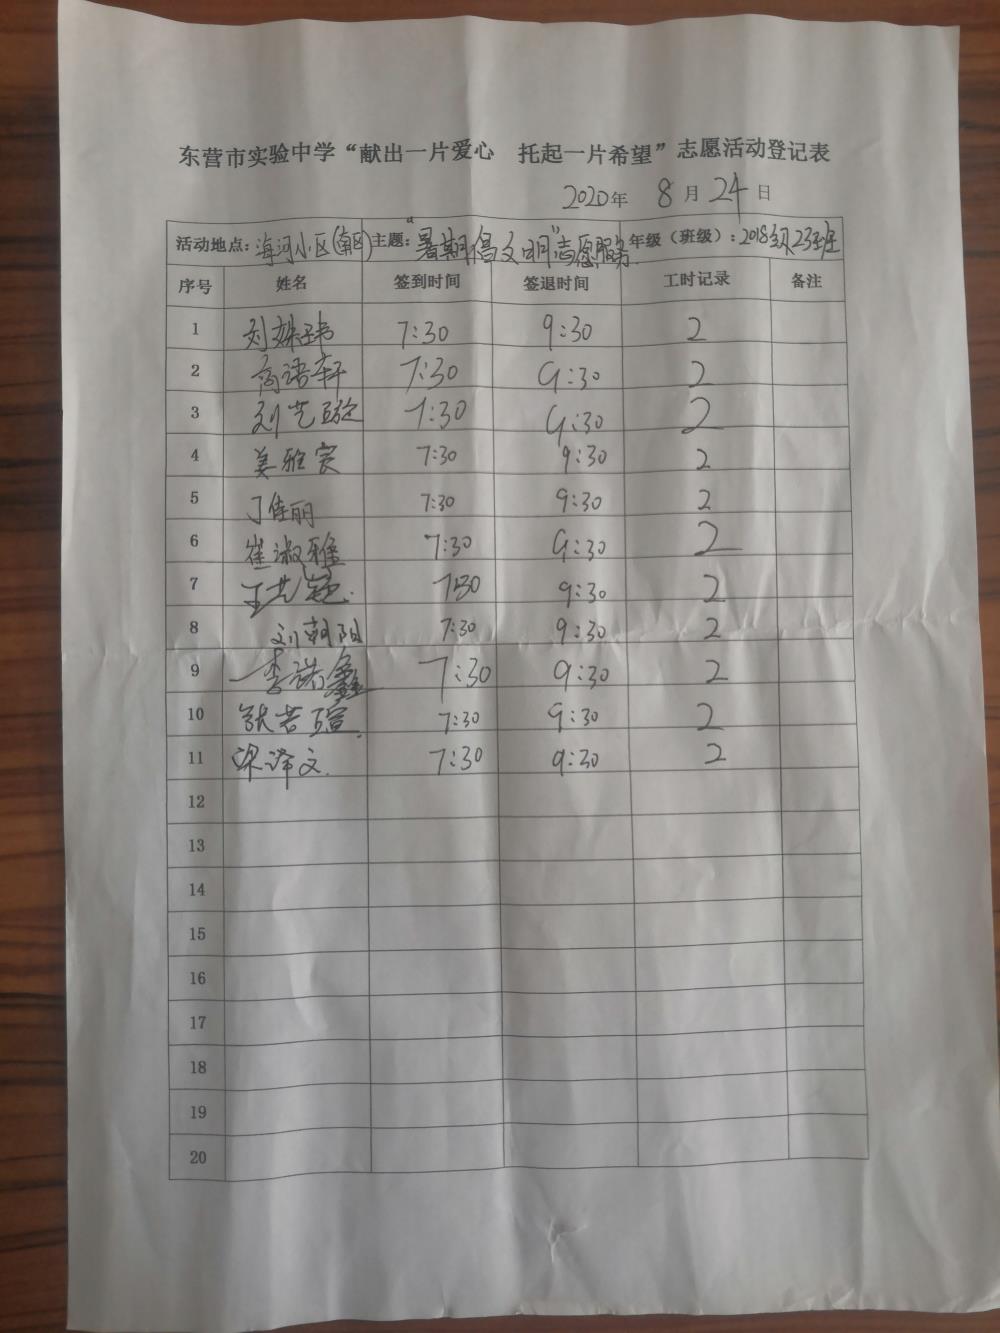 东营市实验中学“献出一片爱心 托起一片希望”志愿活动登记表
2020年 8月24日
活动地点：海河小区(南区) 主题：“暑期倡文明”志愿服务 年级（班级）：2018级23班
序号 姓名 签到时间 签退时间 工时记录 备注
1 刘姝玮 7:30 9:30 2
2 高语轩 7:30 9:30 2
3 刘艺璇 7:30 9:30 2
4 姜雅宾 7:30 9:30 2
5 丁佳丽 7:30 9:30 2
6 崔淑雅 7:30 9:30 2
7 王艺颖 7:30 9:30 2
8 刘朝阳 7:30 9:30 2
9 李诺鑫 7:30 9:30 2
10 张若瑄 7:30 9:30 2
11 梁泽文 7:30 9:30 2
12
13
14
15
16
17
18
19
20